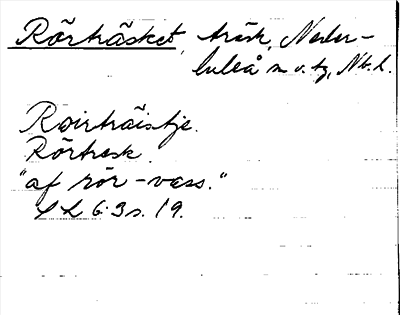 Rörträsket, träsk, Neder-
luleå sn v. tg, Nb. l.
Rwirträistje.
Rörtresk.
"af rör - vass."
LL 6:3 s. 19.